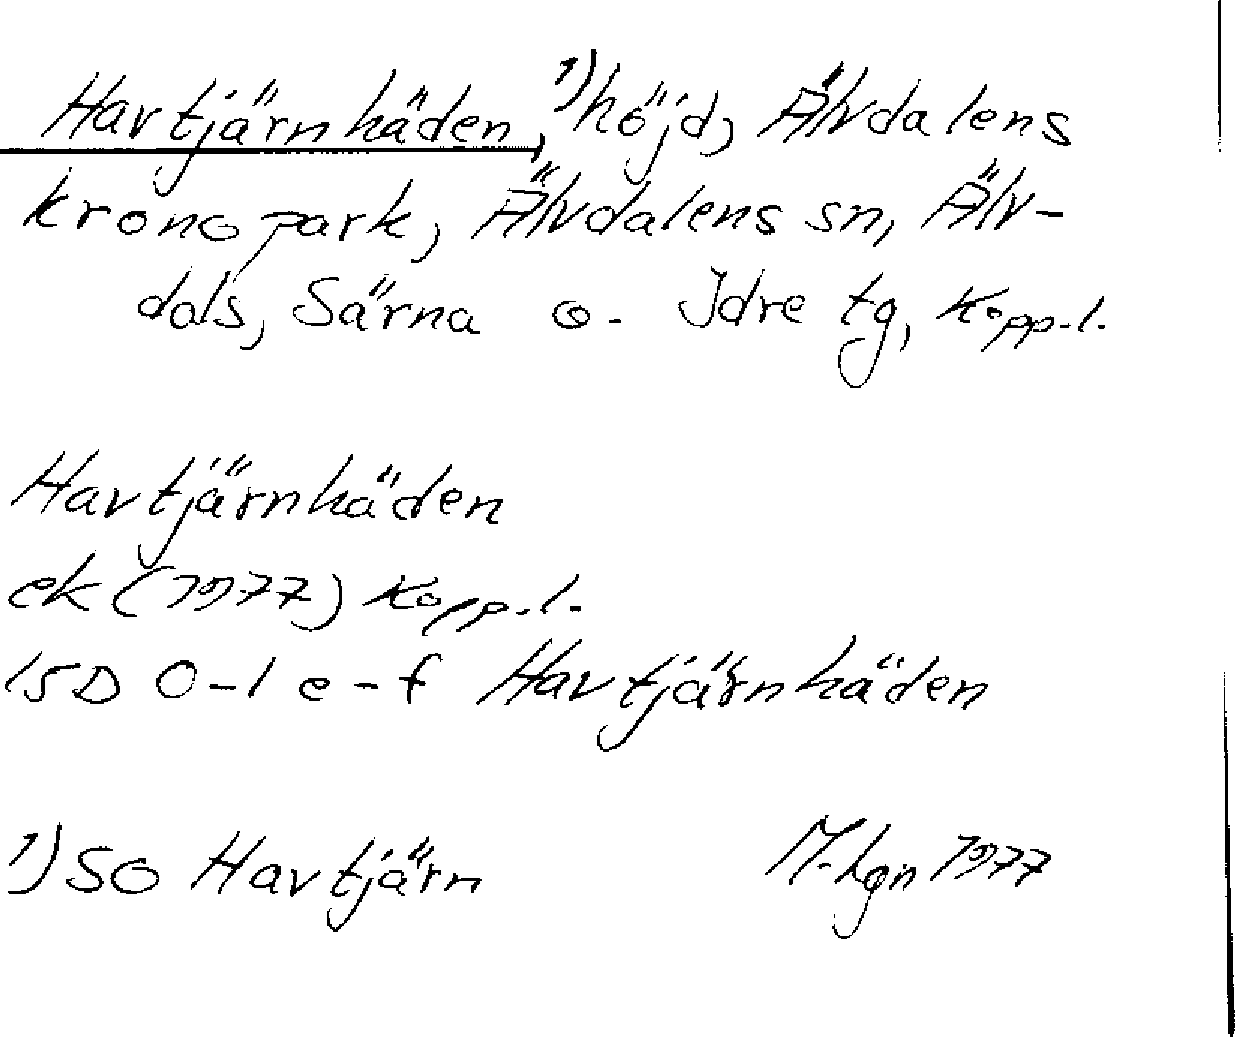 Havtjärnhäden, 1) höjd, Älvdalens
kronopark, Älvdalens sn, Älv-
dals, Särna o. Idre tg, Kopp.l.
Havtjärnhäden
ek (1977) Kopp.l.
15D 0-1 e-f Havtjärnhäden
1) SO Havtjärn M-hgn 1977